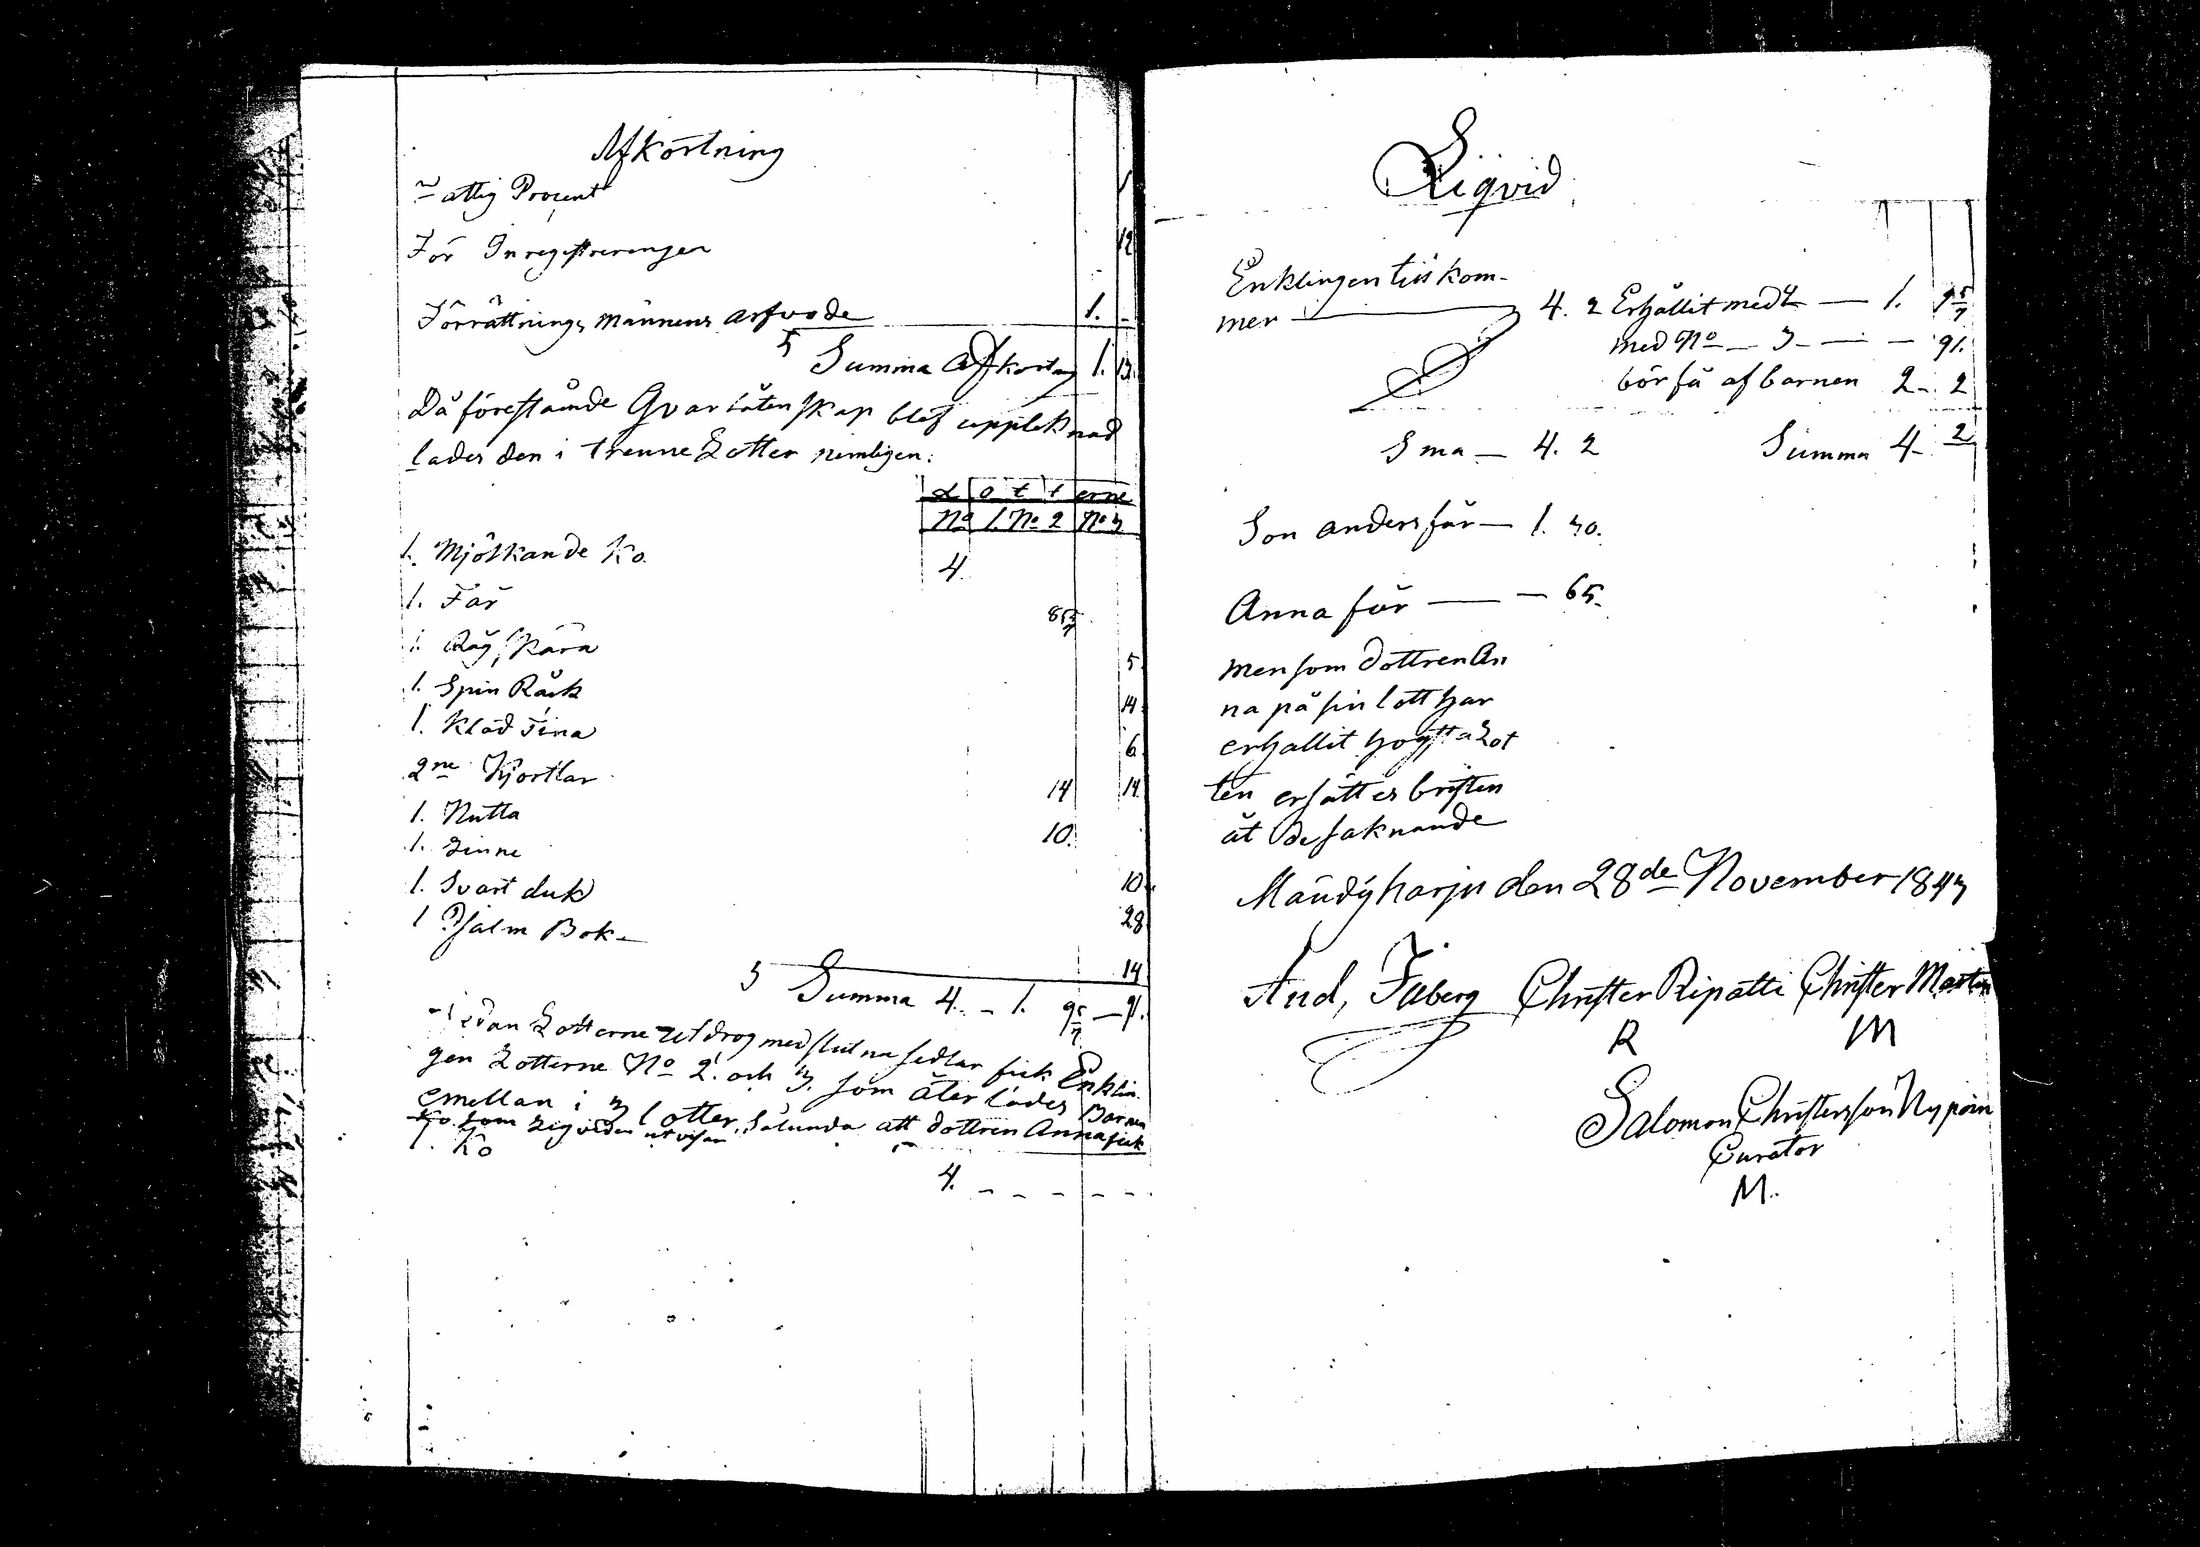 Afkortning
Fattig Procent 1
För Inregistreringen 12
Förrättnings männens arfvode 1. -
Summa Afkortng 1. 13.
Då förestående Qvarlåtenskap blef uppteknad
lades den i trenne Lotter nemligen:
Lotterne
No 1. No 2 No 3
1. Mjölkande Ko. 4.
1. Får 85 5/7
1. Råg skära 5.
1. Spin Råck 14.
1. Kläd Tina 6.
2ne Kjortlar 14 14.
1. Nutta 10.
1. Linne
1. Svart duk 10.
1 Psalm Bok - 28
14
Summa 4. - 1. 95/7 - 91.
Sedan Lotterne utdrog med slutna sedlar fick Enklin
gen Lotterne No 2. och 3. som åter lades Barnen
emellan i 3 lotter, sålunda att dottren Anna fick
Ko. som Liqviden utvisar
1. Ko
4. - - - - - -
Liqvid
Enklingen tillkom-
mer 4. 2 Erhållit med 2 - 1. 9 5/7
med No - 3 - - - 91.
bör få af barnen 2 - 2
Sma - 4. 2 Summa 4 - 2
Son anders får - 1. 30.
Anna får - - 65.
men som dottren An
na på sin lott har
erhallit högsta Lot
ten ersättes bristen
åt de saknande
Mändyharju den 28de November 1843
And, Faberg Christer Ripatti Christer Martin
R M
Salomon Christersson Nypöin
Curator
M.